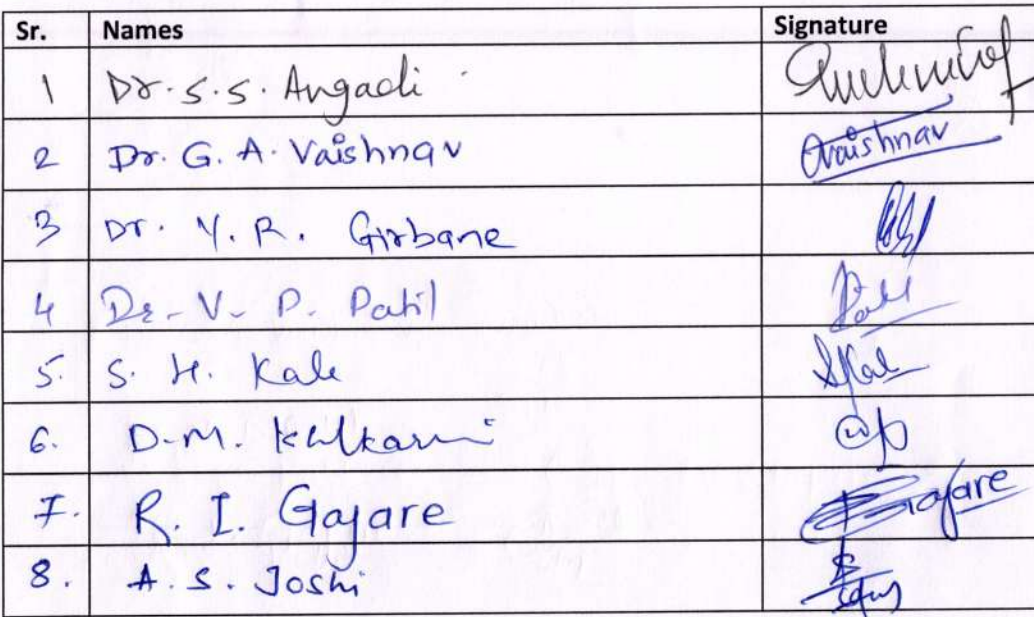 Sr. Names Signature
1 Dr. S.S. Angadi
2 Dr. G. A. Vaishnav Vaishnav
3 Dr. Y. R. Girbane
4 Dr. V. P. Patil
5. S. H. Kale
6. D.M. Kulkarni
7. R. I. Gajare Gajare
8. A. S. Joshi